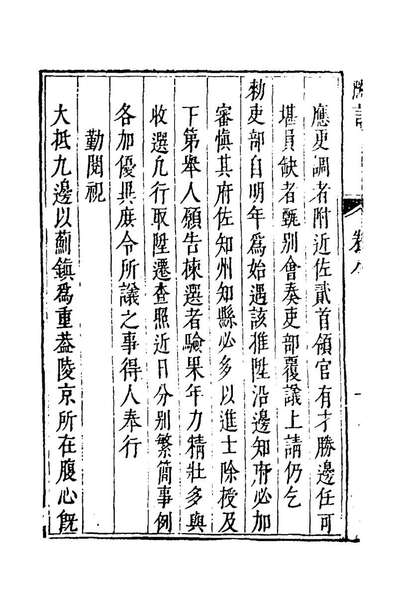 應更調者附近佐貳首領官有才勝邊任可
堪員缺者甄别會奏吏部覆議上請仍乞
勑吏部自明年爲始遇該推陞沿邊知府必加
審慎其府佐知州知縣必多以進士除授及
下第舉人願告揀選者驗果年力精壯多與
收選凡行取陞遷查照近日分别繁簡事例
各加優異庶令所議之事得人奉行
勤閱視
大抵九邊以薊鎮爲重葢陵京所在腹心旣